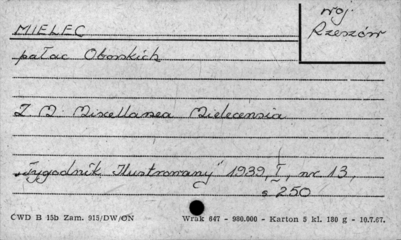 MIELEC
woj.
Rzeszów
pałac Oborskich
Z M Miscellanea Mielecensia
"Tygodnik Ilustrowany" 1939, I, nr 13,
s 250
CWD B 15b Zam. 915/DW/ON Wrak 647 - 980.000 - Karton 5 kl. 180 g - 10.7.67.